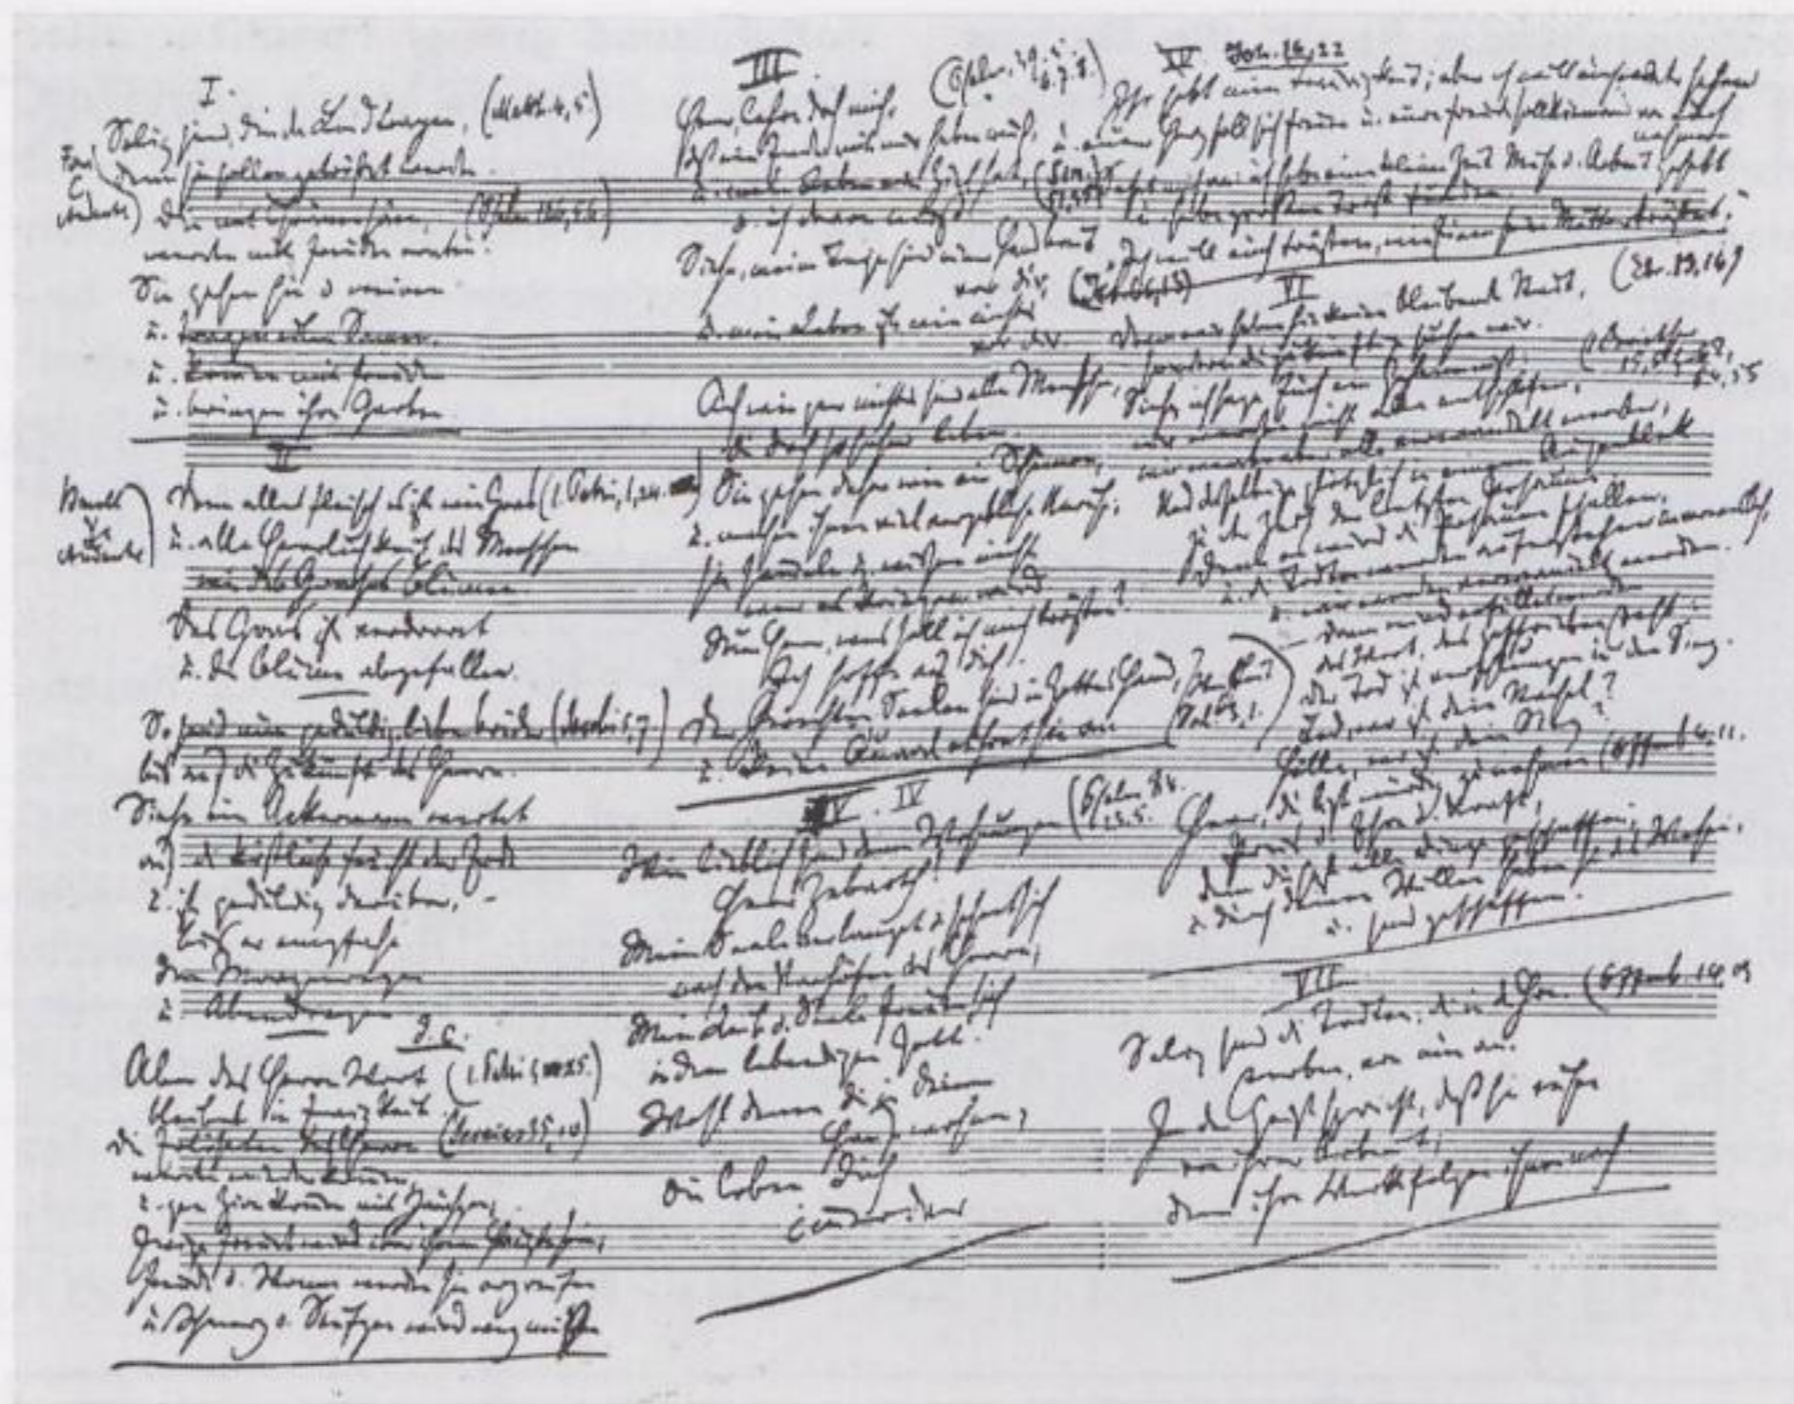 I.
Selig sind, die da Leid tragen, (Matth. 4, 5)
denn sie sollen getröstet werden.
Die mit Thränen säen, (Psalm 126, 5.6)
werden mit Freuden ernten.
Sie gehen hin u. weinen
u. tragen edlen Samen.
u. kommen mit Freuden
u. bringen ihre Garben.
II
Denn alles Fleisch es ist wie Gras (1. Petri, 1, 24.
u. alle Herrlichkeit des Menschen
wie des Grases Blumen.
Das Gras ist verdorret
u. die Blume abgefallen.
So seid nun geduldig, lieben Brüder (Jacobi 5, 7)
bis auf die Zukunft des Herrn.
Siehe ein Ackermann wartet
auf die köstliche Frucht der Erde
u. ist geduldig darüber,
bis er empfahe
den Morgenregen
u. Abendregen
d.c.
Aber des Herren Wort (1. Petri 1, 25.)
bleibet in Ewigkeit.
Die Erlöseten des Herren (Jesaias 35, 10)
werden wieder kommen,
u. gen Zion kommen mit Jauchzen;
Ewige Freude wird über ihrem Haupte sein;
Freude u. Wonne werden sie ergreifen
u. Schmerz u. Seufzen wird weg müssen
III.
(Psalm. 39, 5.
6.7.8.)
Herr, lehre doch mich,
daß ein Ende mit mir haben muß,
u. mein Leben ein Ziel hat,
u. ich davon muß.
Siehe, meine Tage sind einer Hand breit
vor dir,
u. mein Leben ist wie nichts
vor dir.
Ach wie gar nichts sind alle Menschen,
die doch so sicher leben.
Sie gehen daher wie ein Schemen,
u. machen ihnen viel vergebliche Unruhe;
sie sammeln u. wissen nicht
wer es kriegen wird.
Nun Herr, wess soll ich mich trösten?
Ich hoffe auf dich.
Der Gerechten Seelen sind in Gottes Hand,
u. keine Quaal rühret sie an
IV
Wie lieblich sind deine Wohnungen (Psalm 84.
Herr Zebaoth!
Meine Seele verlanget u. sehnet sich
nach den Vorhöfen des Herrn;
Mein Leib u. Seele freuen sich
in dem lebendigen Gott.
Wohl denen die in deinem
Hause wohnen,
die loben dich
immerdar
V Joh. 16, 22
Ihr habt nun Traurigkeit; aber ich will euch wieder sehen
u. euer Herz soll sich freuen u. eure Freude soll Niemand von euch
nehmen
Sehet mich an: ich habe eine kleine Zeit Mühe u. Arbeit gehabt
u. habe großen Trost funden.
Ich will euch trösten, wie Einen seine Mutter tröstet.
VI
Denn wir haben hie keine bleibende Statt, (Ebr. 13, 14)
sondern die zukünftige suchen wir.
Siehe ich sage Euch ein Geheimniß: (Corinther
wir werden nicht alle entschlafen,
wir werden aber alle verwandelt werden,
Und dasselbige plötzlich in einem Augenblick
zu der Zeit der letzten Posaune.
Denn es wird die Posaune schallen,
u. die Todten werden auferstehen unverweslich,
u. wir werden verwandelt werden.
Dann wird erfüllet werden
das Wort, das geschrieben steht:
Der Tod ist verschlungen in den Sieg.
Tod, wo ist dein Stachel?
Hölle, wo ist dein Sieg?
Herr, du bist würdig zu nehmen (Offenb. 4, 11.
Preis u. Ehre u. Kraft,
denn du hast alle Dinge geschaffen,
u. durch deinen Willen haben sie das Wesen,
u. sind geschaffen.
VII
Selig sind die Todten, die in d. Herrn (Offenb. 14, 13
sterben, von nun an.
Ja der Geist spricht, daß sie ruhen
von ihrer Arbeit;
denn ihre Werke folgen ihnen nach